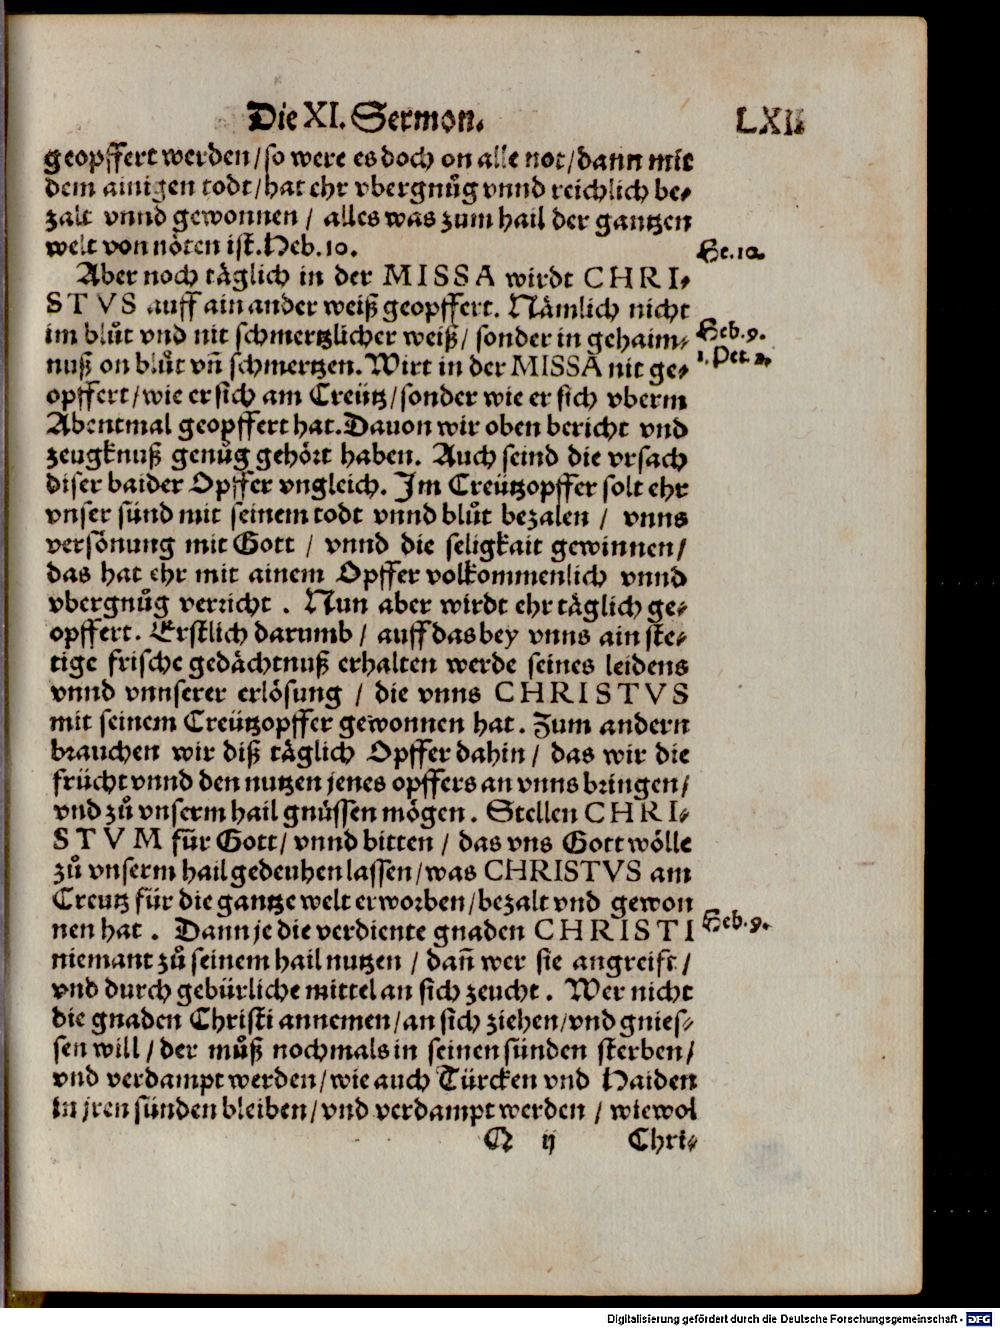 Die XI. Sermon. LXII
geopffert werden/so were es doch on alle not/dann mit
dem ainigen todt/hat ehr vbergnůg vnnd reichlich be-
zalt vnnd gewonnen / alles was zum hail der gantzen
welt von nöten ist.Heb.10.
He.10.
Aber noch täglich in der MISSA wirdt CHRI-
STVS auff ain ander weiß geopffert. Nämlich nicht
im blůt vnd nit schmertzlicher weiß/ sonder in gehaim-
Heb.9.
nuß on blůt vn̄ schmertzen.Wirt in der MISSA nit ge-
1.Pet.2.
opffert/wie er sich am Creütz/sonder wie er sich vberm
Abentmal geopffert hat.Dauon wir oben bericht vnd
zeugknuß genůg gehört haben. Auch seind die vrsach
diser baider Opffer vngleich. Im Creützopffer solt ehr
vnser sünd mit seinem todt vnnd blůt bezalen / vnns
versönung mit Gott / vnnd die seligkait gewinnen/
das hat ehr mit ainem Opffer volkommenlich vnnd
vbergnůg verricht . Nun aber wirdt ehr täglich ge-
opffert. Erstlich darumb / auff das bey vnns ain ste-
tige frische gedächtnuß erhalten werde seines leidens
vnnd vnnserer erlösung / die vnns CHRISTVS
mit seinem Creützopffer gewonnen hat. Zum andern
brauchen wir diß täglich Opffer dahin / das wir die
frücht vnnd den nutzen jenes opffers an vnns bringen/
vnd zů vnserm hail gnüssen mögen. Stellen CHRI-
STVM für Gott/ vnnd bitten / das vns Gott wölle
zů vnserm hail gedeuhen lassen/was CHRISTVS am
Creutz für die gantze welt erworben/bezalt vnd gewon
nen hat . Dann je die verdiente gnaden CHRISTI
Heb.9.
niemant zů seinem hail nutzen / dan̄ wer sie angreift /
vnd durch gebürliche mittel an sich zeucht . Wer nicht
die gnaden Christi annemen/an sich ziehen/vnd gnies-
sen will / der můß nochmals in seinen sünden sterben/
vnd verdampt werden/wie auch Türcken vnd Haiden
in jren sünden bleiben/vnd verdampt werden / wiewol
Q ij Chri-
Digitalisierung gefördert durch die Deutsche Forschungsgemeinschaft - DFG